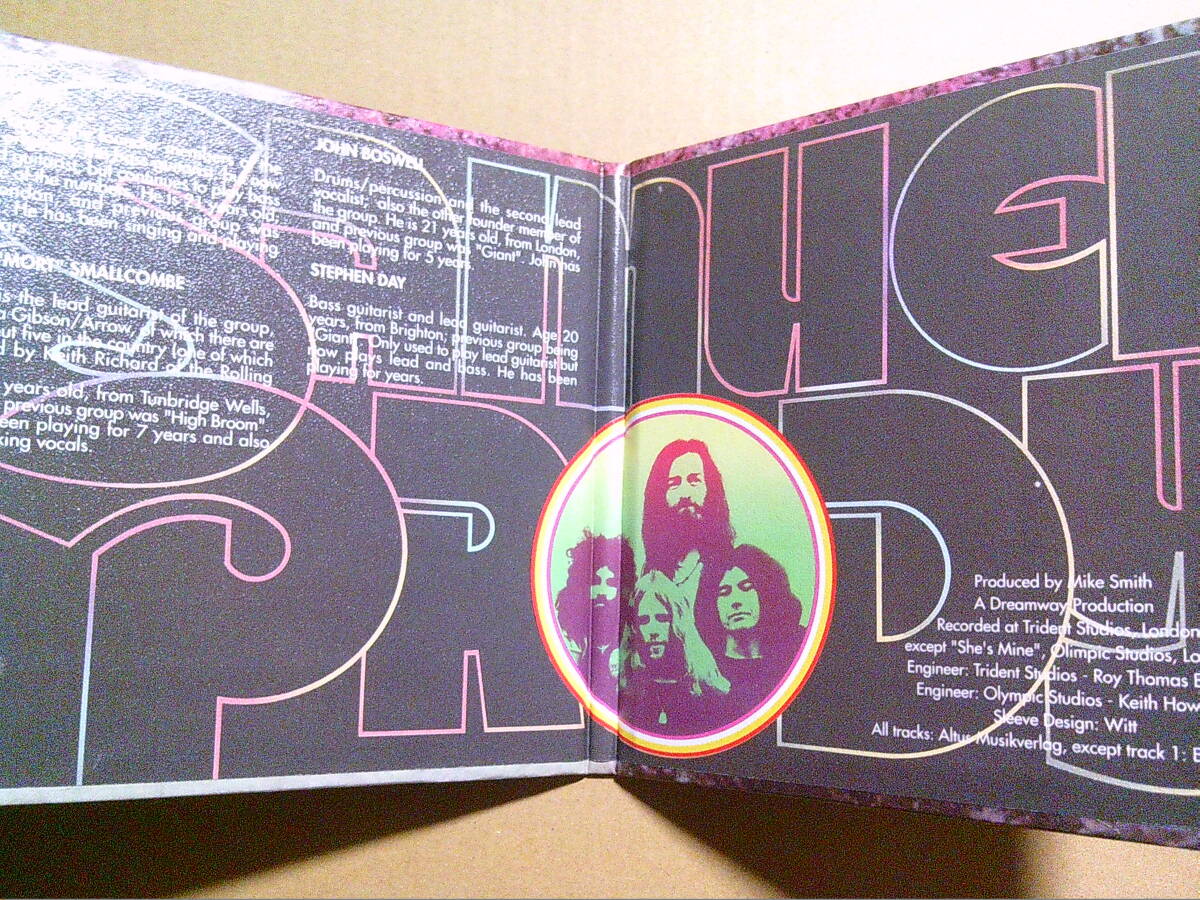 guitarist but continues to play bass
of the numbers. He is 21 years old,
and previous group was
He has been singing and playing
"MORT" SMALLCOMBE
is the lead guitarist of the group,
a Gibson/Arrow, of which there are
but five in the country one of which
by Keith Richard of the Rolling
years old, from Tunbridge Wells,
previous group was "High Broom".
been playing for 7 years and also
vocals.
JOHN BOSWELL
Drums/percussion and the second lead
vocalist, also the other founder member of
the group. He is 21 years old, from London,
and previous group was "Giant". John has
been playing for 5 years.
STEPHEN DAY
Bass guitarist and lead guitarist. Age 20
years, from Brighton, previous group being
"Giant". Only used to play lead guitarist but
now, plays lead and bass. He has been
playing for years.
Produced by Mike Smith
A Dreamway Production
Recorded at Trident Studios, London
except "She's Mine", Olimpic Studios,
Engineer: Trident Studios - Roy Thomas
Engineer: Olympic Studios - Keith
Sleeve Design: Witt
All tracks: Altus Musikverlag, except track 1: